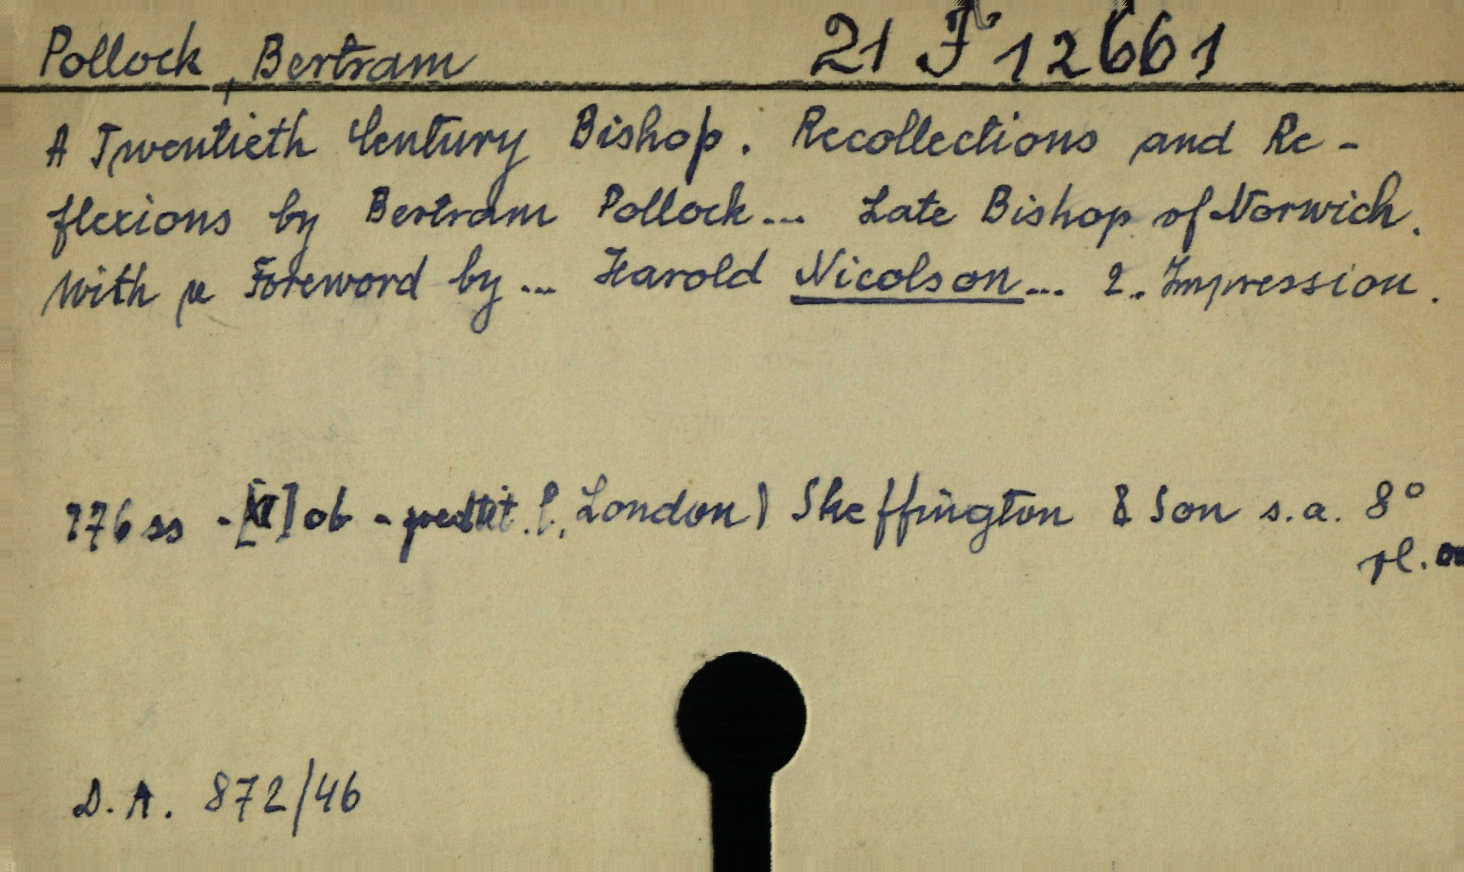 Pollock, Bertram 21 J 12661
A Twentieth Century Bishop. Recollections and Re-
flexions by Bertram Pollock... Late Bishop of Norwich.
With a Foreword by... Harold Nicolson... 2. Impression.
176 ss - ob - London) Skeffington & Son s.a. 8°
pl.
D.A. 872/46